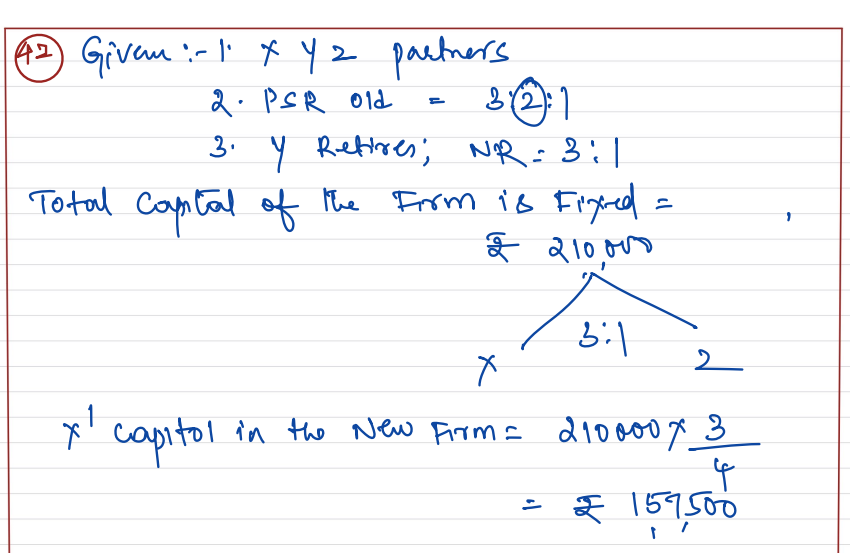 42 Given :- 1. X Y Z partners
2. PSR old = 3:2:1
3. Y Retires; NR = 3:1
Total Capital of the Firm is Fixed =
₹ 210,000
3:1
X Z
X' Capital in the New Firm = 210000 x 3/4
= ₹ 157,500